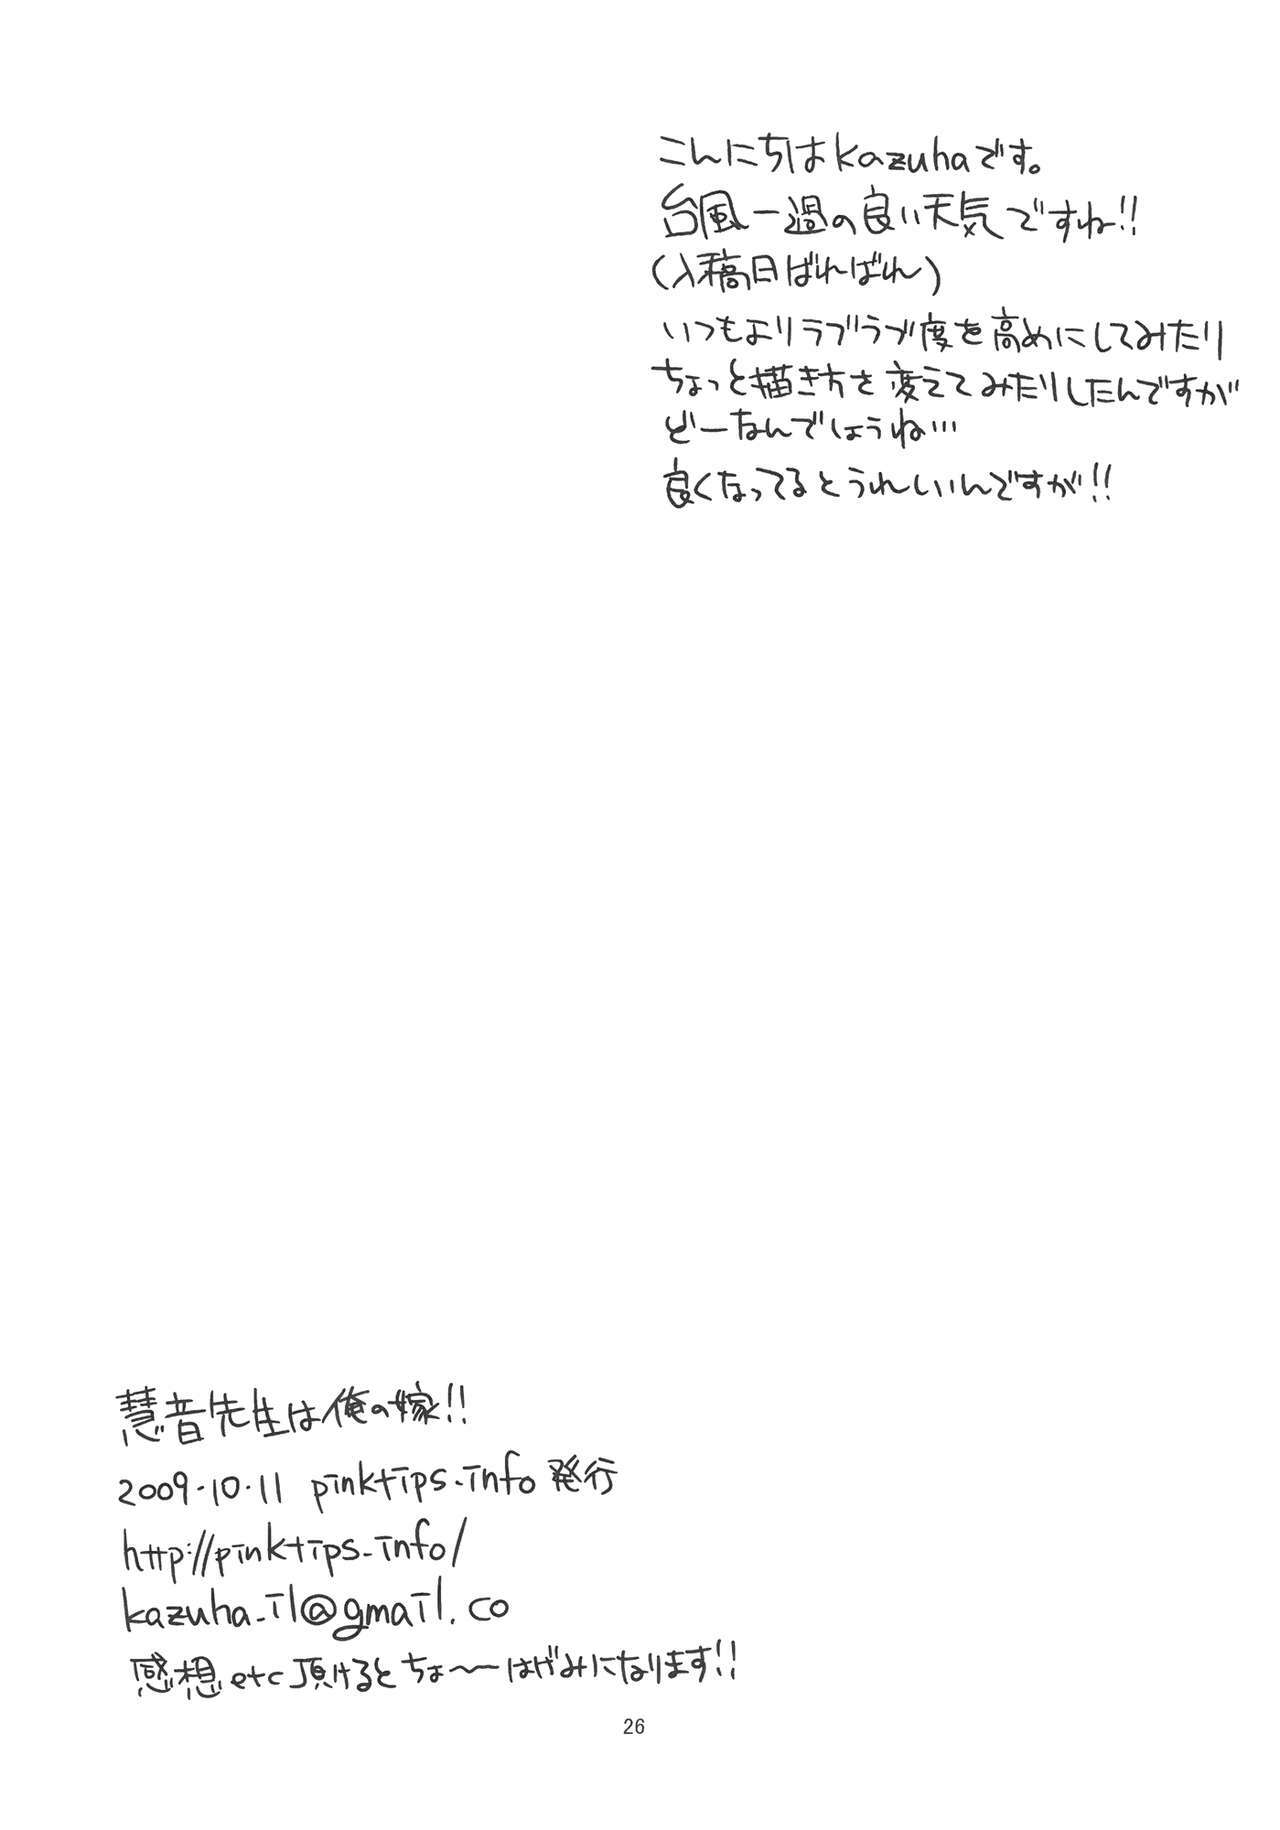 こんにちはkazuhaです。
台風一過の良い天気ですね!!
(入稿日ばればれ)
いつもよりラブラブ度を高めにしてみたり
ちょっと描き方を変えてみたりしたんですが
どーなんでしょうね…
良くなってるとうれしいんですが!!
慧音先生は俺の嫁!!
2009.10.11 pinktips-info 発行
http://pinktips-info/
kazuha-il@gmail.co
感想etc頂けるとちょ〜〜はげみになります!!
26